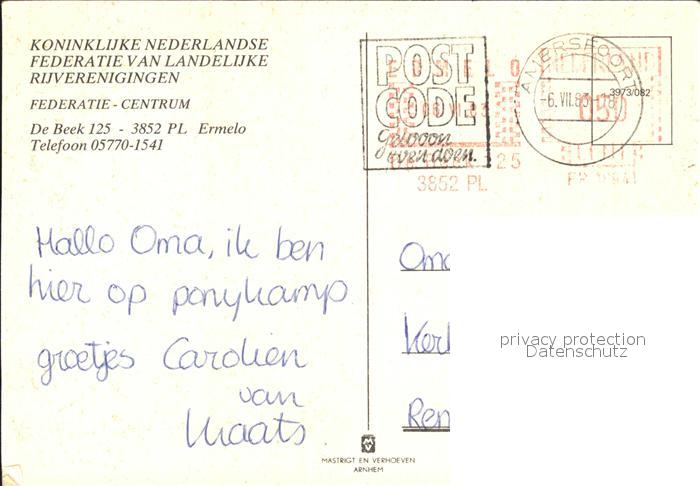 KONINKLIJKE NEDERLANDSE
FEDERATIE VAN LANDELIJKE
RIJVERENIGINGEN
FEDERATIE - CENTRUM
De Beek 125 - 3852 PL Ermelo
Telefoon 05770-1541
POST
CODE
Gewoon
even doen.
AMERSFOORT
-6.VII.83.-18
3973/082
125
3852 PL
Hallo Oma, ik ben
hier op ponykamp
groetjes Carolien
van
Maats.
Oma
Ren
privacy protection
Datenschutz
MASTRIGT EN VERHOEVEN
ARNHEM